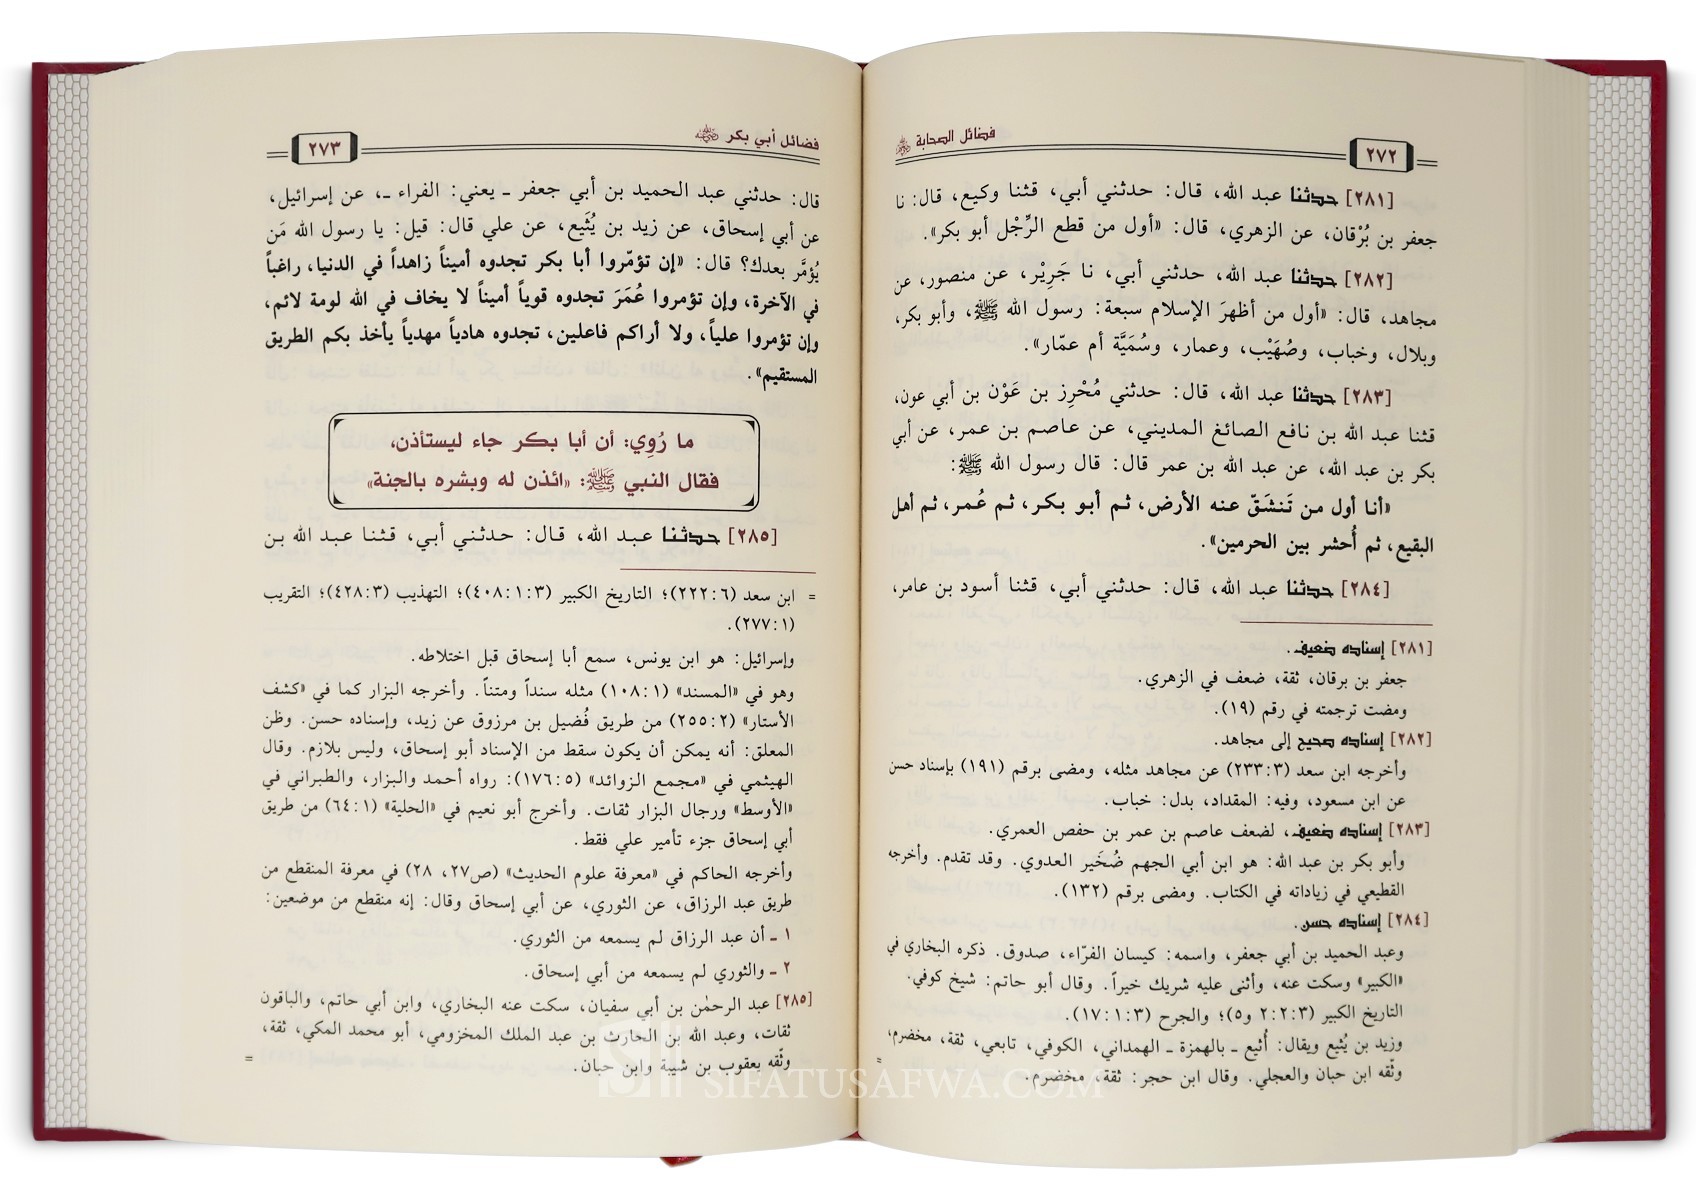 فضائل الصحابة
٢٧٢
[٢٨١] حدثنا عبد الله، قال: حدثني أبي، قثنا وكيع، قال: نا
جعفر بن بُرْقان، عن الزهري، قال: «أول من قطع الرِّجْل أبو بكر».
[٢٨٢] حدثنا عبد الله، حدثني أبي، نا جَرِيْر، عن منصور، عن
مجاهد، قال: «أول من أظهرَ الإسلام سبعة: رسول الله ﷺ، وأبو بكر،
وبلال، وخباب، وصُهَيْب، وعمار، وسُمَيَّة أم عمّار».
[٢٨٣] حدثنا عبد الله، قال: حدثني مُحْرِز بن عَوْن بن أبي عون،
قثنا عبد الله بن نافع الصائغ المديني، عن عاصم بن عمر، عن أبي
بكر بن عبد الله، عن عبد الله بن عمر قال: قال رسول الله ﷺ:
«أنا أول من تَنشَقّ عنه الأرض، ثم أبو بكر، ثم عُمر، ثم أهل
البقيع، ثم أُحشر بين الحرمين».
[٢٨٤] حدثنا عبد الله، قال: حدثني أبي، قثنا أسود بن عامر،
[٢٨١] إسناده ضعيف.
جعفر بن برقان، ثقة، ضعف في الزهري.
ومضت ترجمته في رقم (١٩).
[٢٨٢] إسناده صحيح إلى مجاهد.
وأخرجه ابن سعد (٣: ٢٣٣) عن مجاهد مثله، ومضى برقم (١٩١) بإسناد حسن
عن ابن مسعود، وفيه: المقداد، بدل: خباب.
[٢٨٣] إسناده ضعيف، لضعف عاصم بن عمر بن حفص العمري.
وأبو بكر بن عبد الله: هو ابن أبي الجهم صُخَير العدوي. وقد تقدم. وأخرجه
القطيعي في زياداته في الكتاب. ومضى برقم (١٣٢).
[٢٨٤] إسناده حسن.
وعبد الحميد بن أبي جعفر، واسمه: كيسان الفرّاء، صدوق. ذكره البخاري في
«الكبير» وسكت عنه، وأثنى عليه شريك خيراً. وقال أبو حاتم: شيخ كوفي.
التاريخ الكبير (٣: ٢: ٢ و٥)؛ والجرح (٣: ١: ١٧).
وزيد بن يُثيع ويقال: أُثيع ـ بالهمزة ـ الهمداني، الكوفي، تابعي، ثقة، مخضرم،
وثّقه ابن حبان والعجلي. وقال ابن حجر: ثقة، مخضرم. =
فضائل أبي بكر
٢٧٣
قال: حدثني عبد الحميد بن أبي جعفر ـ يعني: الفراء ـ، عن إسرائيل،
عن أبي إسحاق، عن زيد بن يُثَيع، عن علي قال: قيل: يا رسول الله مَن
يُؤمَّر بعدك؟ قال: «إن تؤمّروا أبا بكر تجدوه أميناً زاهداً في الدنيا، راغباً
في الآخرة، وإن تؤمروا عُمَرَ تجدوه قوياً أميناً لا يخاف في الله لومة لائم،
وإن تؤمروا علياً، ولا أراكم فاعلين، تجدوه هادياً مهدياً يأخذ بكم الطريق
المستقيم».
ما رُوِي: أن أبا بكر جاء ليستأذن،
فقال النبي ﷺ: «ائذن له وبشره بالجنة»
[٢٨٥] حدثنا عبد الله، قال: حدثني أبي، قثنا عبد الله بن
= ابن سعد (٦: ٢٢٢)؛ التاريخ الكبير (٣: ١: ٤٠٨)؛ التهذيب (٣: ٤٢٨)؛ التقريب
(١: ٢٧٧).
وإسرائيل: هو ابن يونس، سمع أبا إسحاق قبل اختلاطه.
وهو في «المسند» (١: ١٠٨) مثله سنداً ومتناً. وأخرجه البزار كما في «كشف
الأستار» (٢: ٢٥٥) من طريق فُضيل بن مرزوق عن زيد، وإسناده حسن. وظن
المعلق: أنه يمكن أن يكون سقط من الإسناد أبو إسحاق، وليس بلازم. وقال
الهيثمي في «مجمع الزوائد» (٥: ١٧٦): رواه أحمد والبزار، والطبراني في
«الأوسط» ورجال البزار ثقات. وأخرج أبو نعيم في «الحلية» (١: ٦٤) من طريق
أبي إسحاق جزء تأمير علي فقط.
وأخرجه الحاكم في «معرفة علوم الحديث» (ص٢٧، ٢٨) في معرفة المنقطع من
طريق عبد الرزاق، عن الثوري، عن أبي إسحاق وقال: إنه منقطع من موضعين:
١ ـ أن عبد الرزاق لم يسمعه من الثوري.
٢ ـ والثوري لم يسمعه من أبي إسحاق.
[٢٨٥] عبد الرحمٰن بن أبي سفيان، سكت عنه البخاري، وابن أبي حاتم، والباقون
ثقات، وعبد الله بن الحارث بن عبد الملك المخزومي، أبو محمد المكي، ثقة،
وثّقه يعقوب بن شيبة وابن حبان. =
SIFATUSAFWA.COM